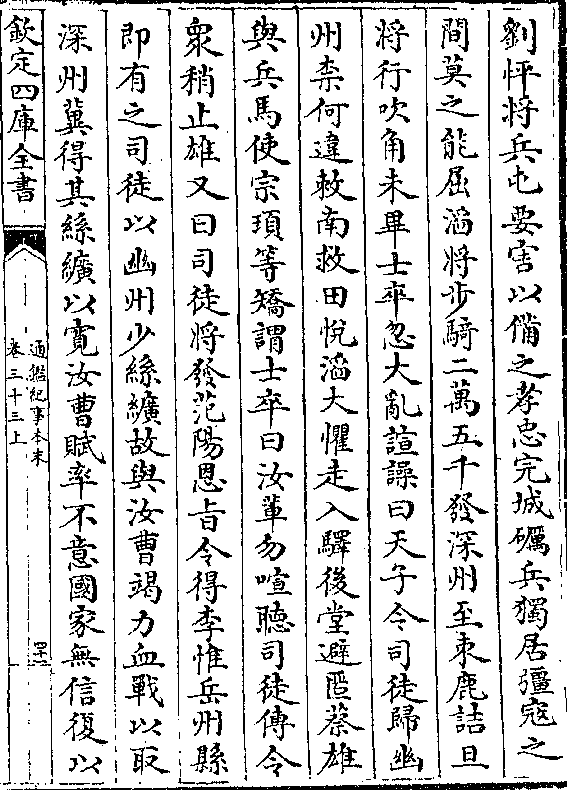 劉怦將兵屯要害以備之孝忠完城礪兵獨居彊寇之
間莫之能屈滔將步騎二萬五千發深州至束鹿詰旦
將行吹角未畢士卒忽大亂諠譟曰天子令司徒歸幽
州柰何違敕南救田悦滔大懼走入驛後堂避匿蔡雄
與兵馬使宗頊等矯謂士卒曰汝輩勿喧聽司徒傳令
衆稍止雄又曰司徒將發范陽恩旨令得李惟岳州縣
即有之司徒以幽州少絲纊故與汝曹竭力血戰以取
深州冀得其絲纊以寛汝曹賦率不意國家無信復以
欽定四庫全書
通鑑紀事本末
卷三十三上